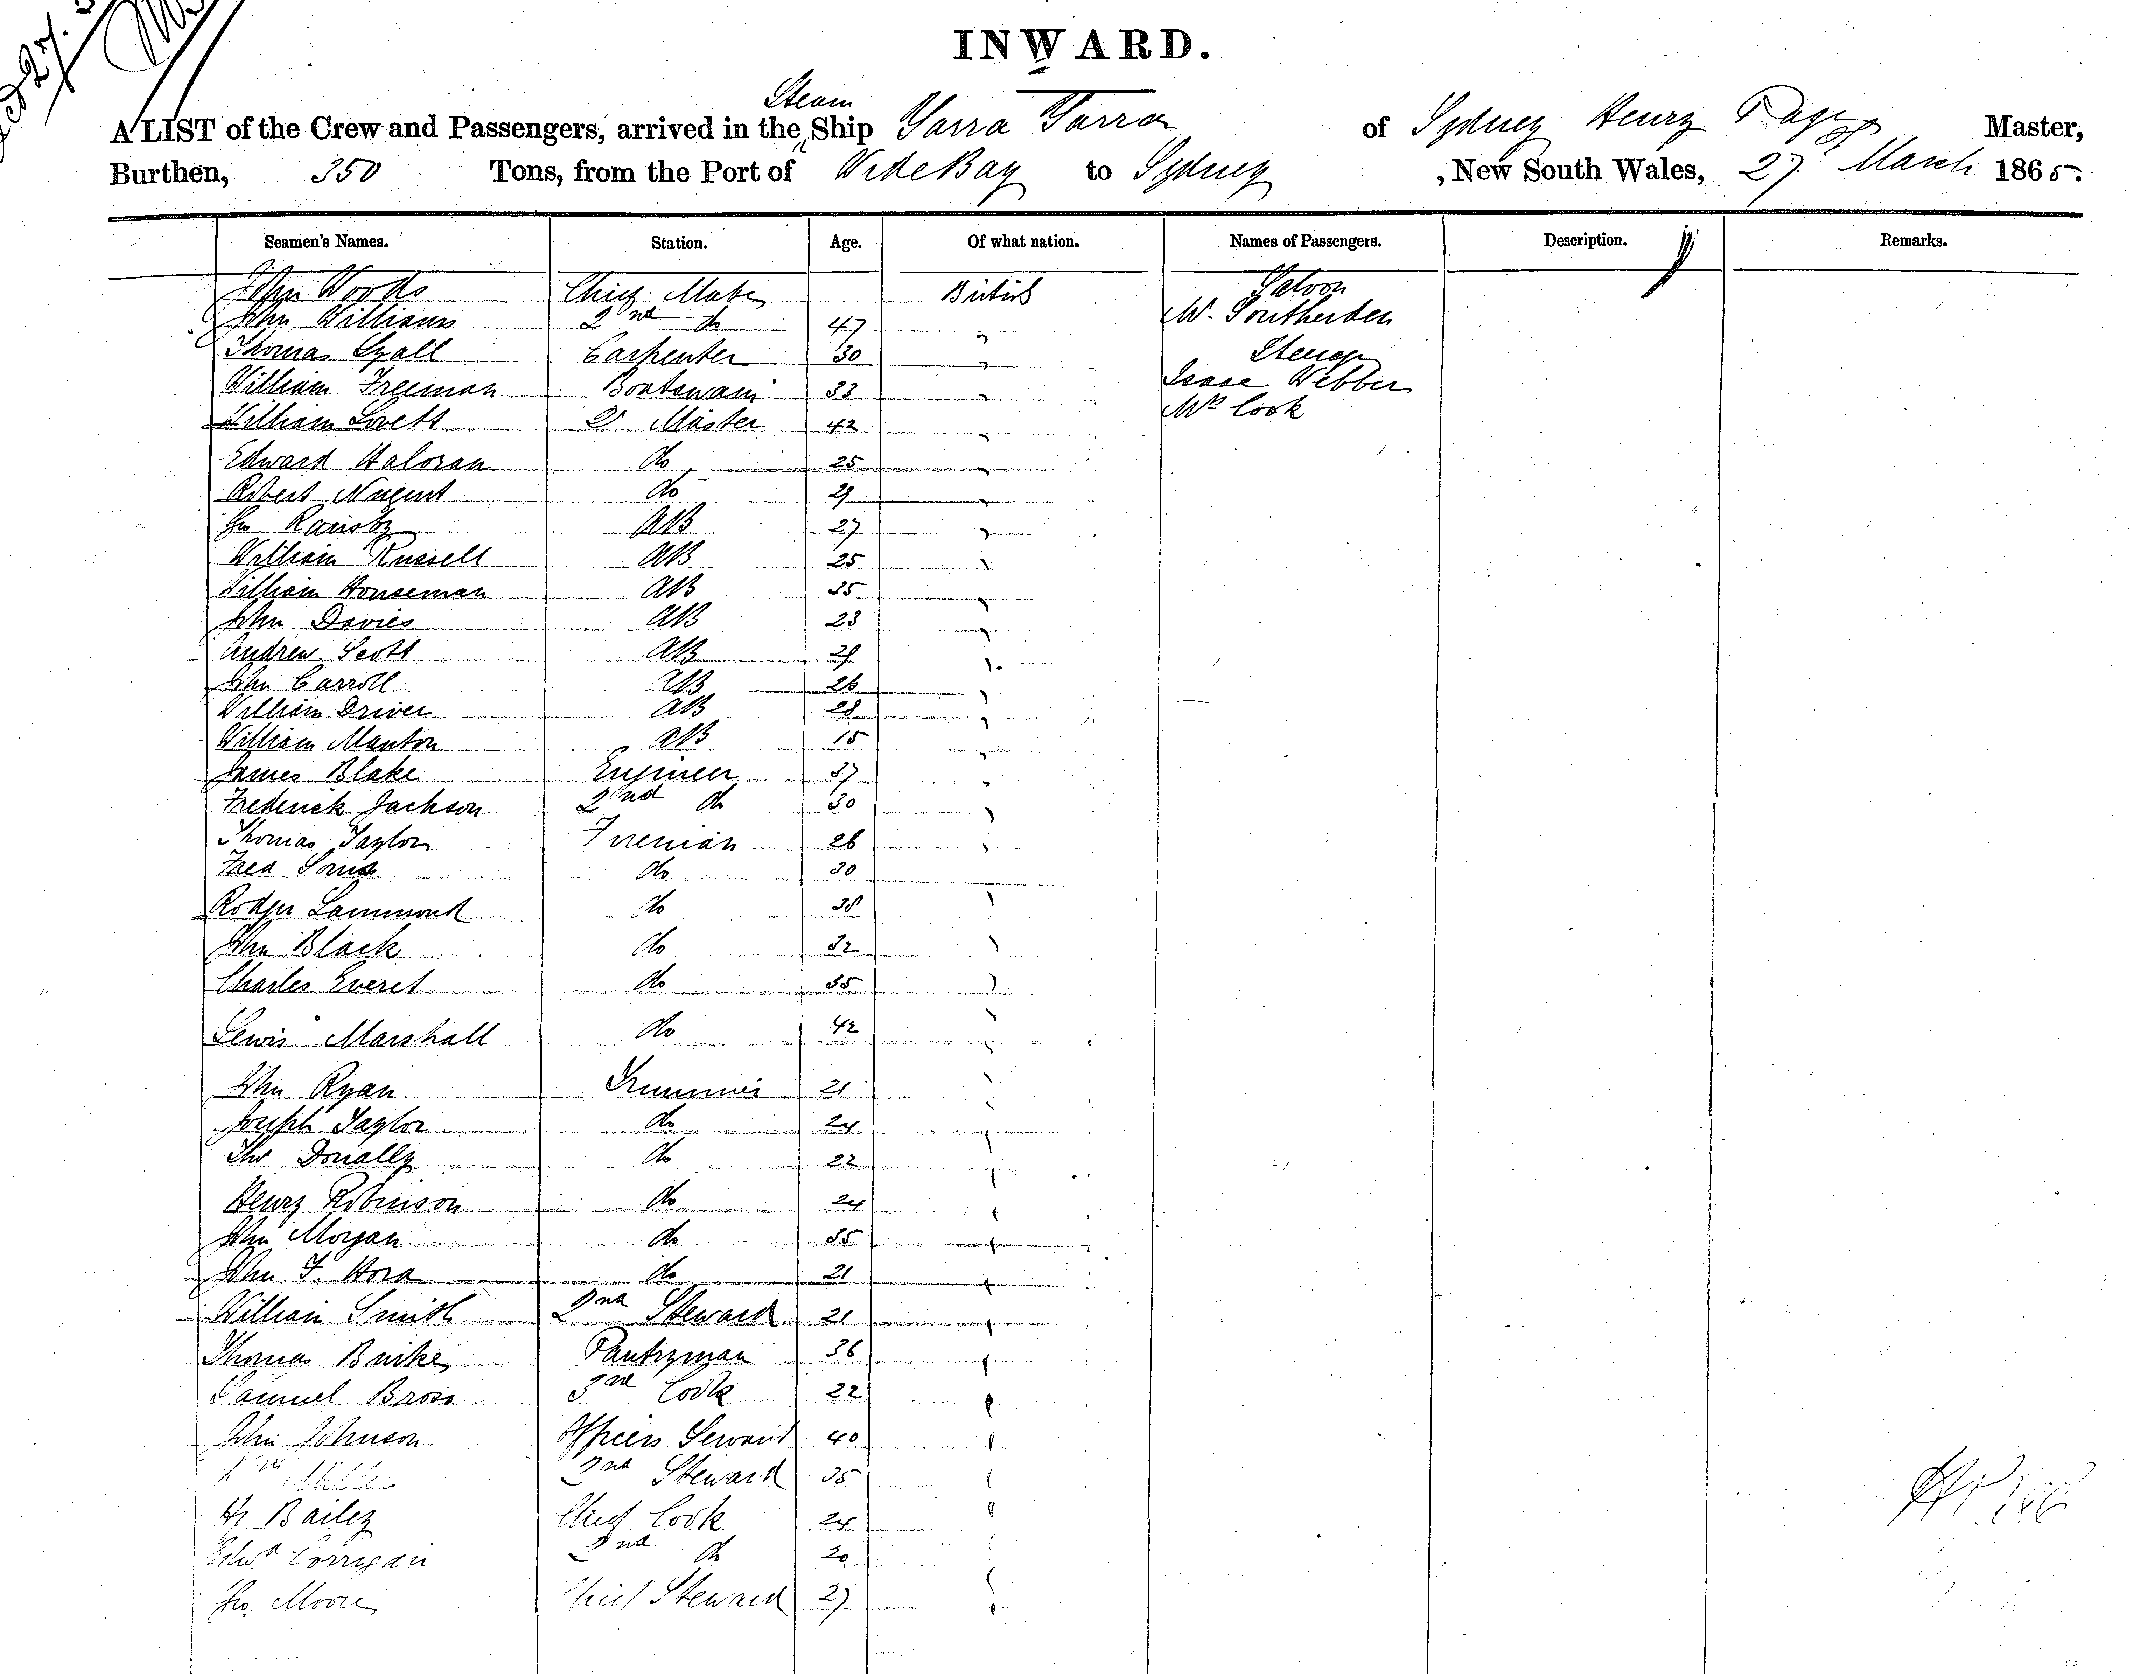 INWARD.
A LIST of the Crew and Passengers, arrived in the Steam Ship Yarra Yarra of Sydney Henry Master,
Burthen, 350 Tons, from the Port of Wide Bay to Sydney, New South Wales, 27 March 1865.
Seamen's Names. Station. Age. Of what nation. Names of Passengers. Description. Remarks.
John Woods Chief Mate British Saloon
John Williams 2nd do 47 " Mr. Southerden
Thomas Lyall Carpenter 30 " Steerage
William Freeman Boatswain 33 " Isaac Webber
William Lovett Qr Master 42 " Mrs Cook
Edward Haloran do 25 "
Robert Nugent do 29 "
Jno 27 "
William Russell AB 25 "
William Houseman AB 35 "
John Davies AB 23 "
Andrew Scott AB 29 "
John Carroll AB 26 "
William Driver AB 28 "
William Manton AB 15 "
James Blake Engineer 37 "
Frederick Jackson 2nd do 30 "
Thomas Taylor Fireman 26 "
Fred do 30
Rodger Lammond do 38 "
John Black do 32 "
Charles Everet do 35 "
Lewis Marshall do 42 "
John Ryan Trimmer 21 "
Joseph Taylor do 24 "
Thos Donally do 22 "
Henry Robinson do 24 "
John Morgan do 35 "
John F. Hora do 21 "
William Smith 2nd Steward 21 "
Thomas Burke Pantryman 36 "
Samuel Bross 3rd Cook 22 "
John Johnson Officers Servant 40 "
2nd Steward 35 "
Hy Bailey Chief Cook 24 "
Edwd Corrigan 2nd do 20 "
Jno. Moore Chief Steward 27 "